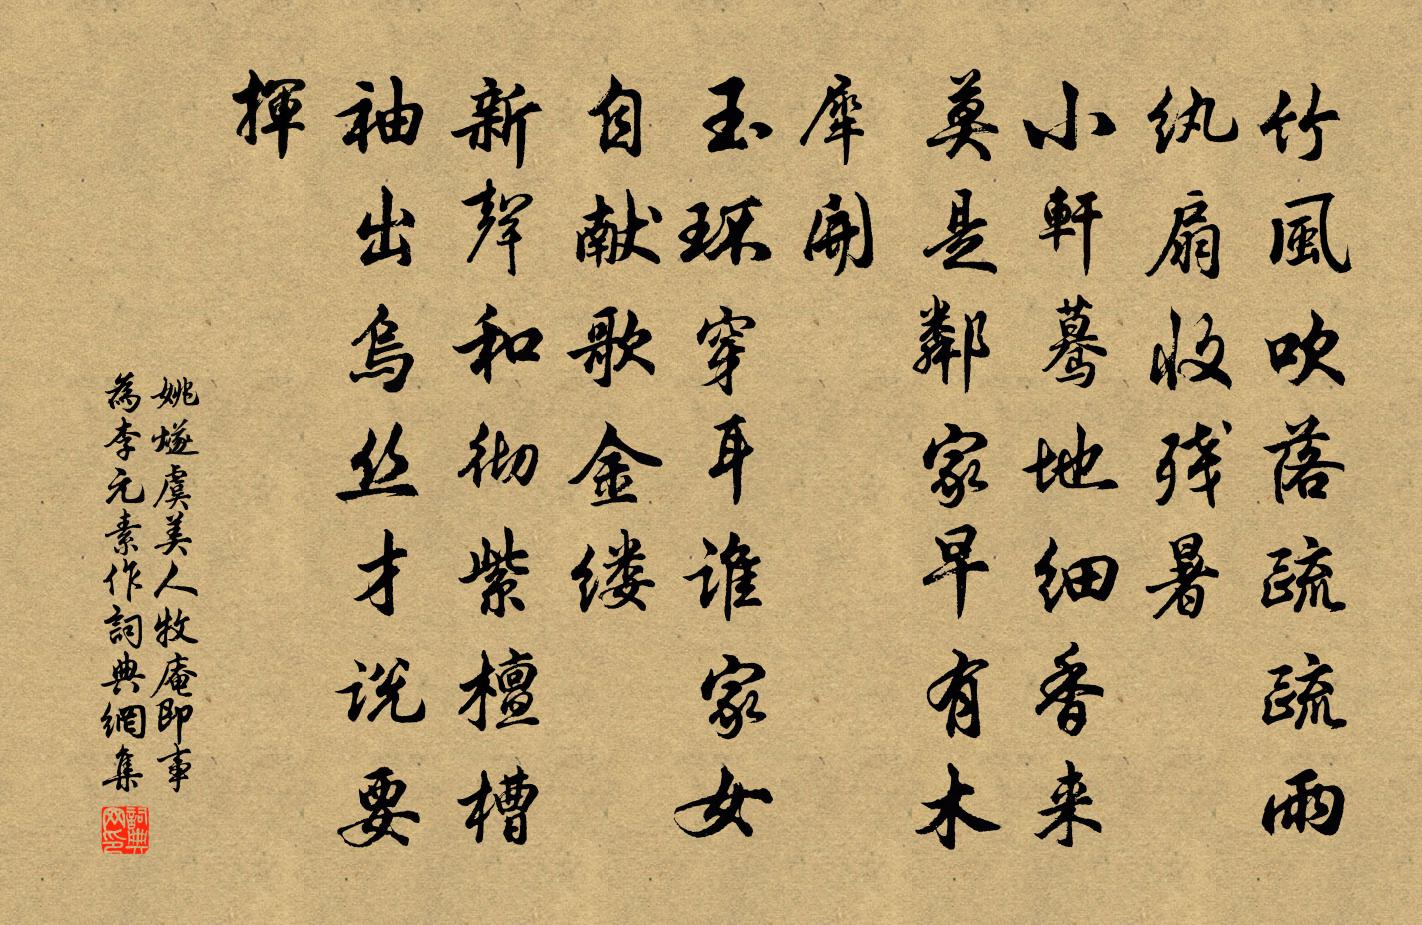 竹風吹落疏疏雨
紈扇收残暑
小軒驀地細香来
莫是鄰家早有木
犀開
玉环穿耳谁家女
自献歌金缕
新声和彻紫檀槽
袖出烏丝才说要
揮
姚燧虞美人牧庵即事
為李元素作詞典網集
詞典
网印